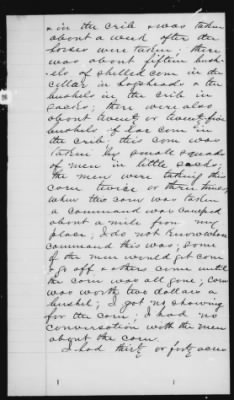 & in the crib & was taken
about a week after the
horses were taken; there
was about fifteen bush-
els of shelled corn in the
cellar in hogsheads & ten
bushels in the crib in
sacks; there were also
about twenty or twenty-five
bushels of ear corn in
the crib; this corn was
taken by small squads
of men in little sacks;
the men were taking this
corn twice or three times
when this corn was taken
a command was camped
about a mile from my
place; I do not know whose
command this was; some
of the men would get corn
& go off & others come until
the corn was all gone; corn
was worth two dollars a
bushel; I got no showing
for the corn; I had no
conversation with the men
about the corn.
I had thirty or forty acres